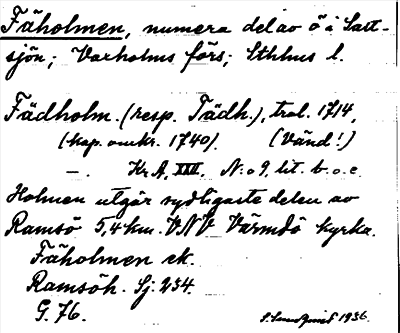 Fäholmen, numera del av ö i Saltsjön; Varholms förs; Sthlms l.
Fädholm. (resp. Tädh.), trol. 1714,
(kop. omkr. 1740). (Vänd!)
—. Kr A, XVII, N:o 9. lit. b. o. c.
Holmen utgör sydligaste delen av
Ramsö 5,4 km. VNV Värmdö kyrka.
Fäholmen ek.
Ramsöh. Sj. 234.
G. 76.
1936